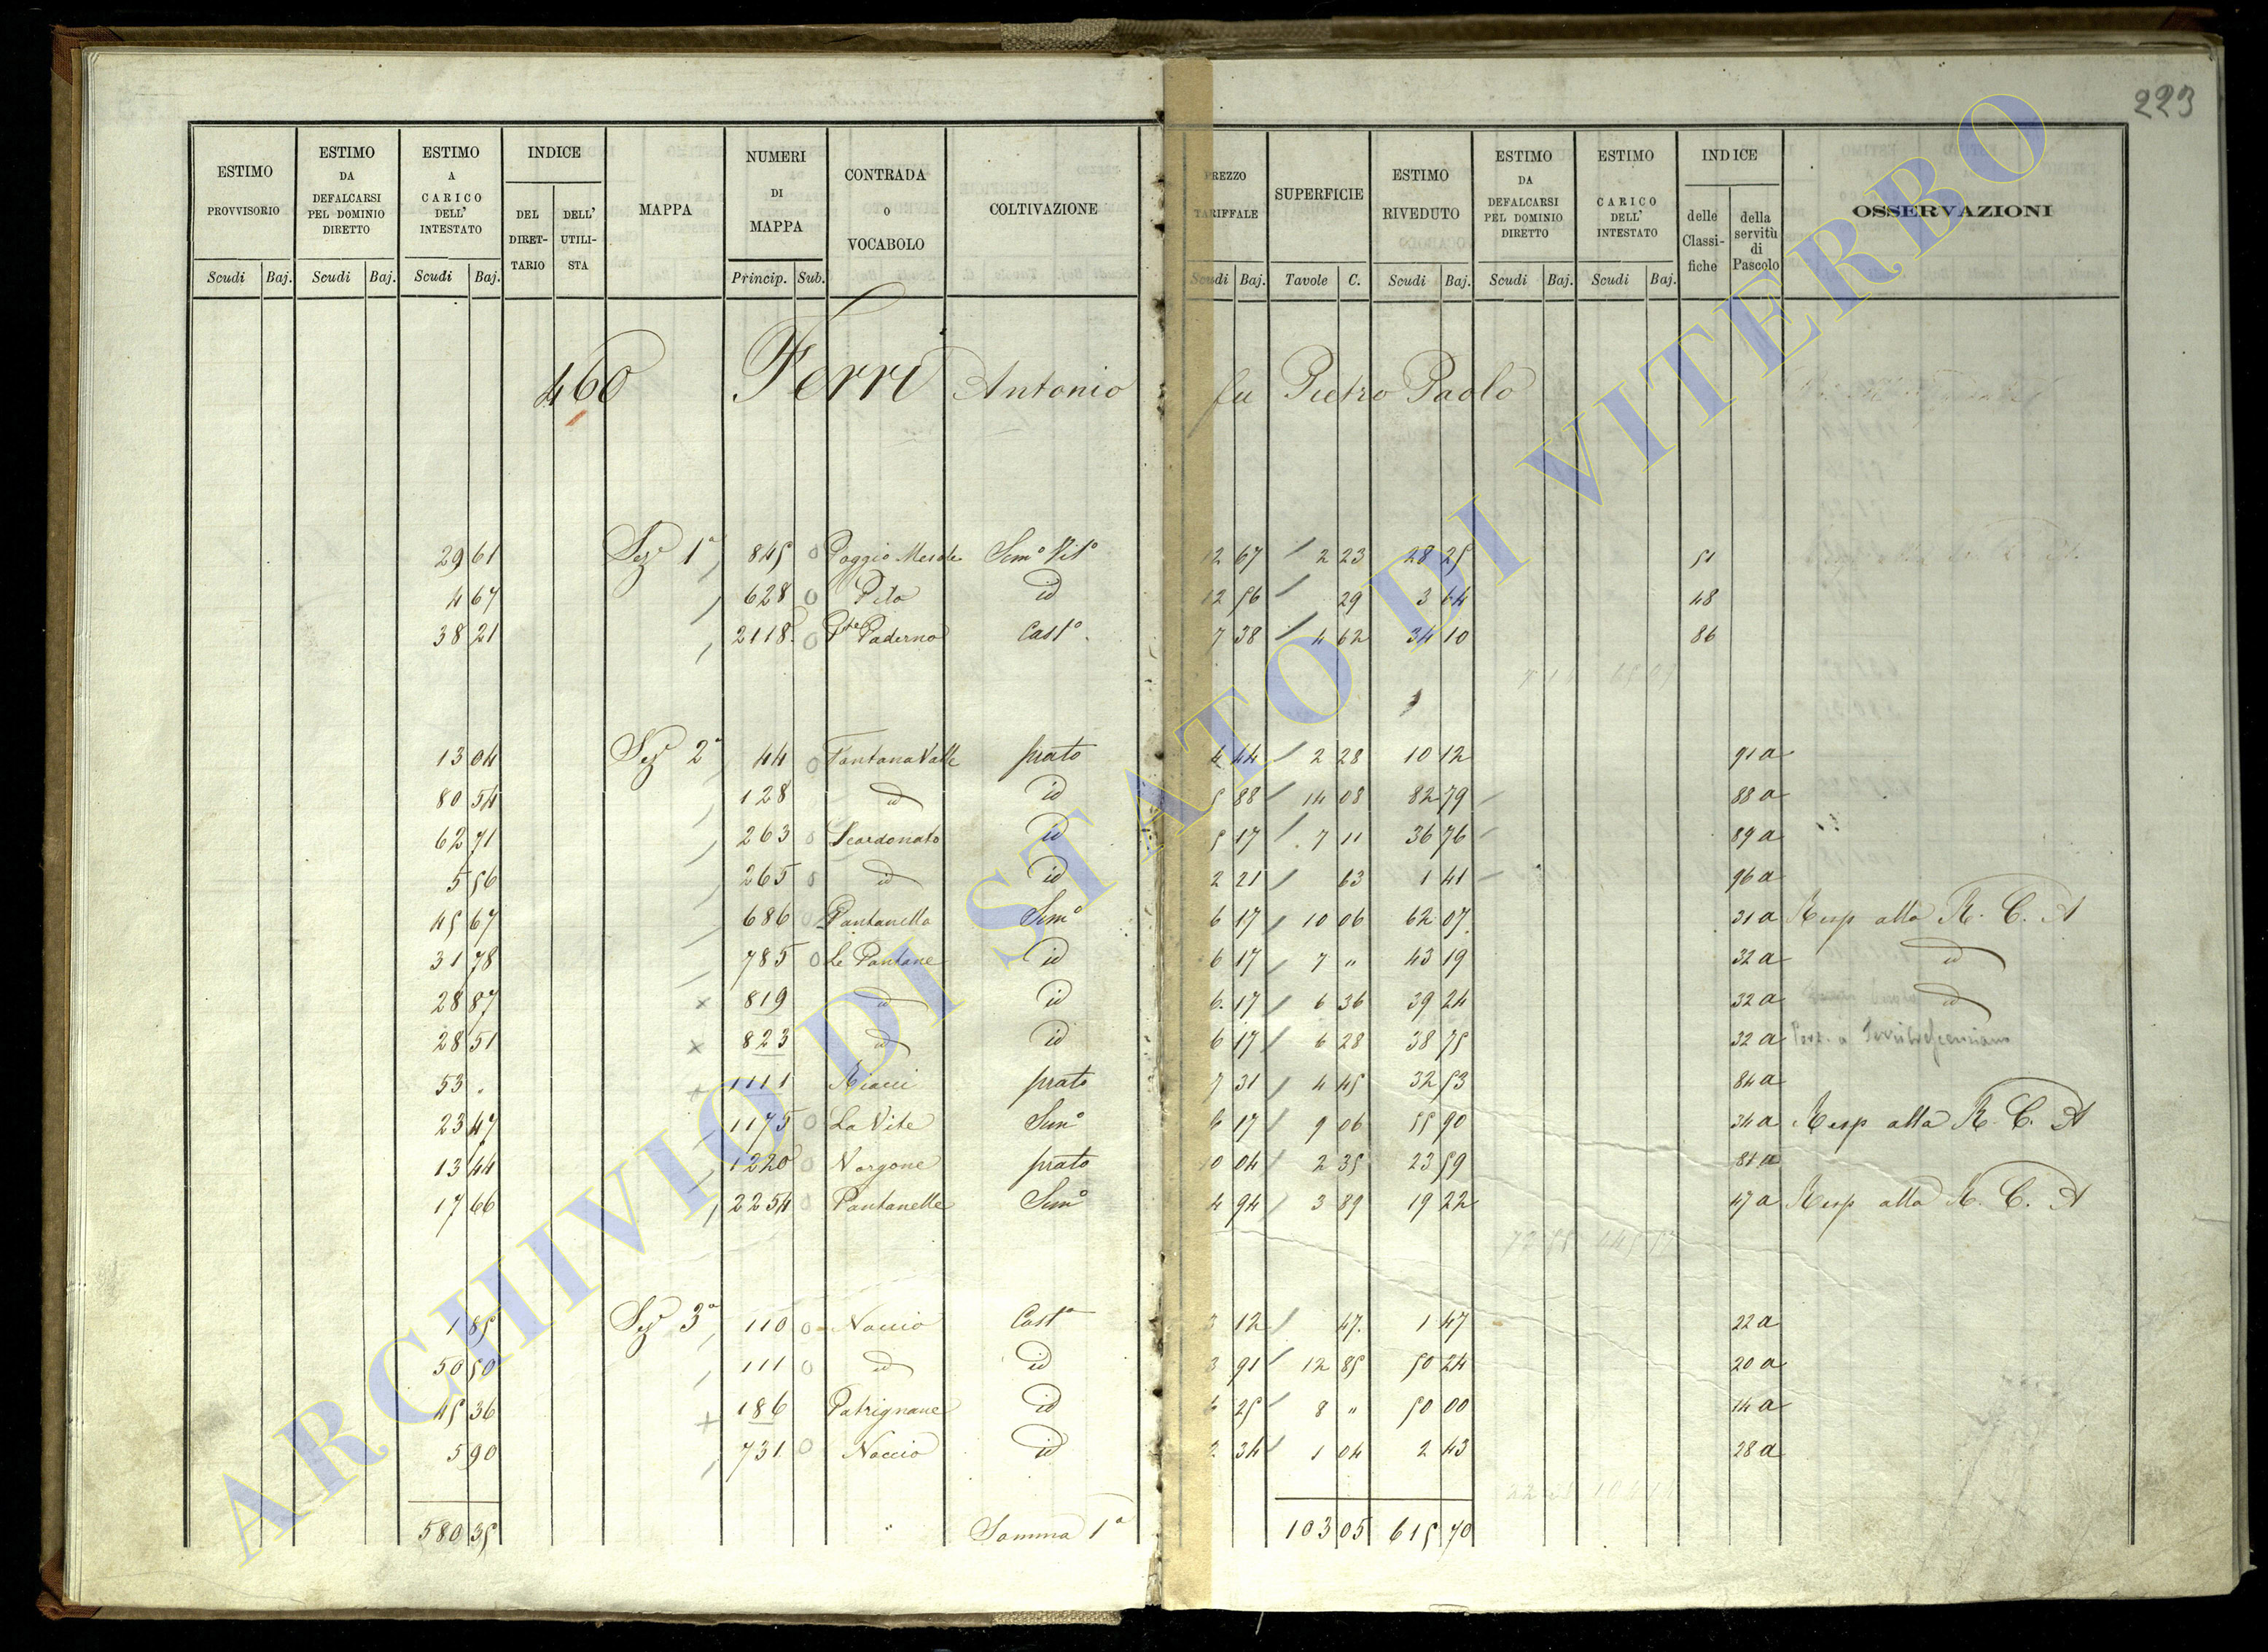 223
ESTIMO PROVVISORIO
ESTIMO DA DEFALCARSI PEL DOMINIO DIRETTO
ESTIMO A CARICO DELL' INTESTATO
INDICE
DEL DIRETTARIO
DELL' UTILISTA
MAPPA
NUMERI DI MAPPA
CONTRADA O VOCABOLO
COLTIVAZIONE
PREZZO TARIFFALE
SUPERFICIE
ESTIMO RIVEDUTO
ESTIMO DA DEFALCARSI PEL DOMINIO DIRETTO
ESTIMO CARICO DELL' INTESTATO
INDICE
delle Classifiche
della servitù di Pascolo
OSSERVAZIONI
Scudi Baj. Scudi Baj. Scudi Baj. Princip. Sub. Scudi Baj. Tavole C. Scudi Baj. Scudi Baj. Scudi Baj.
460 Ferri Antonio fu Pietro Paolo
29 61 Sez 1a 845 0 Poggio Merole Semo Vito 12 67 2 23 28 25 51
4 67 628 0 Pito id 12 56 29 3 64 48
38 21 2118 0 Pte Paderno Casto 7 38 4 62 34 10 86
13 04 Sez 2a 44 0 Fontana Valle prato 4 44 2 28 10 12 91 a
80 54 128 id id 5 88 14 08 82 79 88 a
62 71 263 0 Scardonato id 5 17 7 11 36 76 89 a
5 56 265 0 id id 2 21 63 1 41 96 a
45 67 686 0 Pantanella Semo 6 17 10 06 62 07 31 a Resp alla R. C. A
31 78 785 0 Le Pantane id 6 17 7 " 43 19 32 a id
28 87 x 819 id id 6 17 6 36 39 24 32 a id
28 51 x 823 id id 6 17 6 28 38 75 32 a
53 . 1111 Riacci prato 7 31 4 45 32 53 84 a
23 47 1175 0 La Vite Semo 6 17 9 06 55 90 34 a Resp alla R. C. A
13 44 1220 0 Norgone prato 10 04 2 35 23 59 81 a
17 66 2254 0 Pantanelle Semo 4 94 3 89 19 22 47 a Resp alla R. C. A
1 85 Sez 3a 110 0 Noccio Casto 3 12 47 1 47 22 a
50 50 111 0 id id 3 91 12 85 50 24 20 a
45 36 x 186 Patrignane id 6 25 8 " 50 00 14 a
5 90 731 0 Noccio id 2 34 1 04 2 43 28 a
580 35 Somma 1a 103 05 615 70
ARCHIVIO DI STATO DI VITERBO